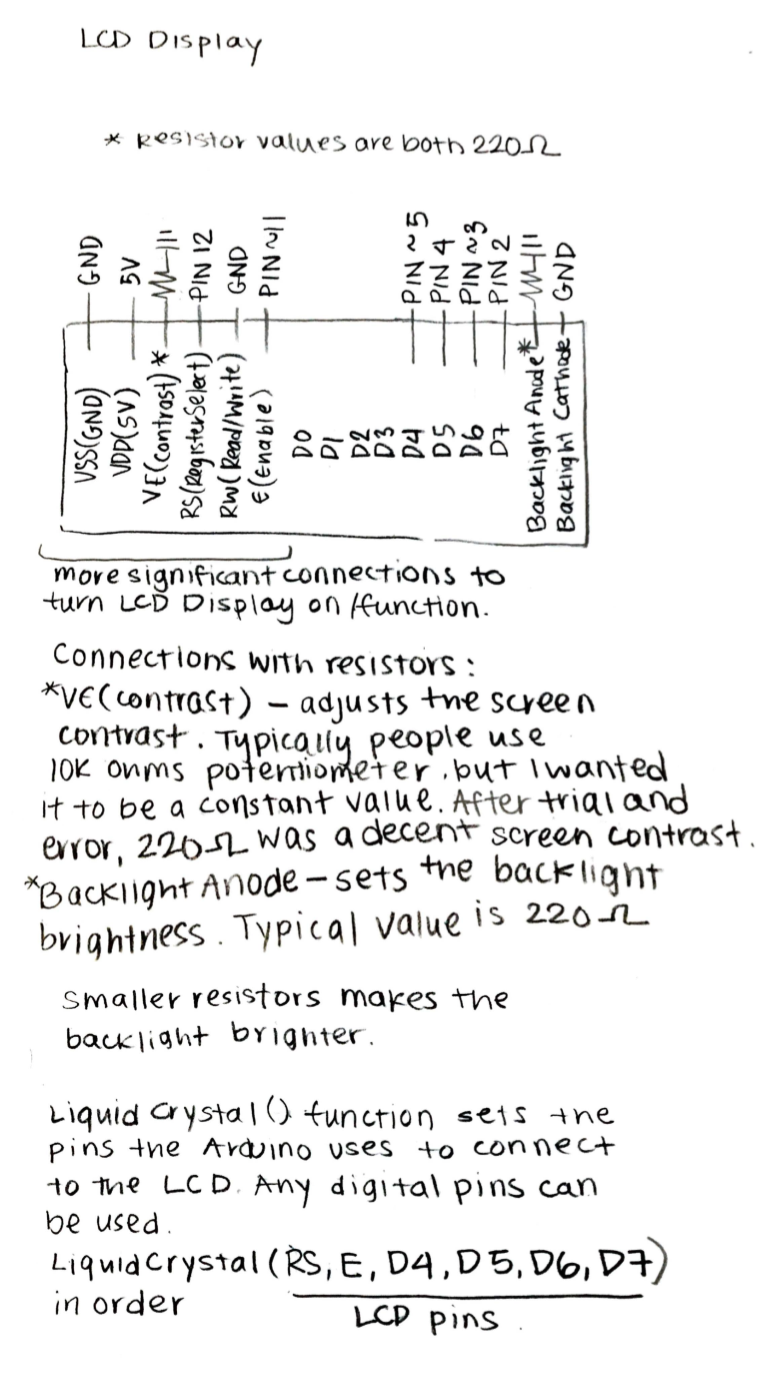 LCD Display
* Resistor values are both 220Ω
GND
5V
PIN 12
GND
PIN ~11
PIN ~5
PIN 4
PIN ~3
PIN 2
GND
VSS(GND)
VDD(5V)
VE(contrast) *
RS(RegisterSelect)
RW(Read/Write)
E(Enable)
D0
D1
D2
D3
D4
D5
D6
D7
Backlight Anode*
Backlight Cathode
more significant connections to
turn LCD Display on/function.
Connections with resistors:
*VE(contrast) – adjusts the screen
contrast. Typically people use
10K ohms potentiometer, but I wanted
it to be a constant value. After trial and
error, 220Ω was a decent screen contrast.
*Backlight Anode – sets the backlight
brightness. Typical value is 220Ω
Smaller resistors makes the
backlight brighter.
Liquid Crystal() function sets the
pins the Arduino uses to connect
to the LCD. Any digital pins can
be used.
LiquidCrystal(RS, E, D4, D5, D6, D7)
in order
LCD pins.